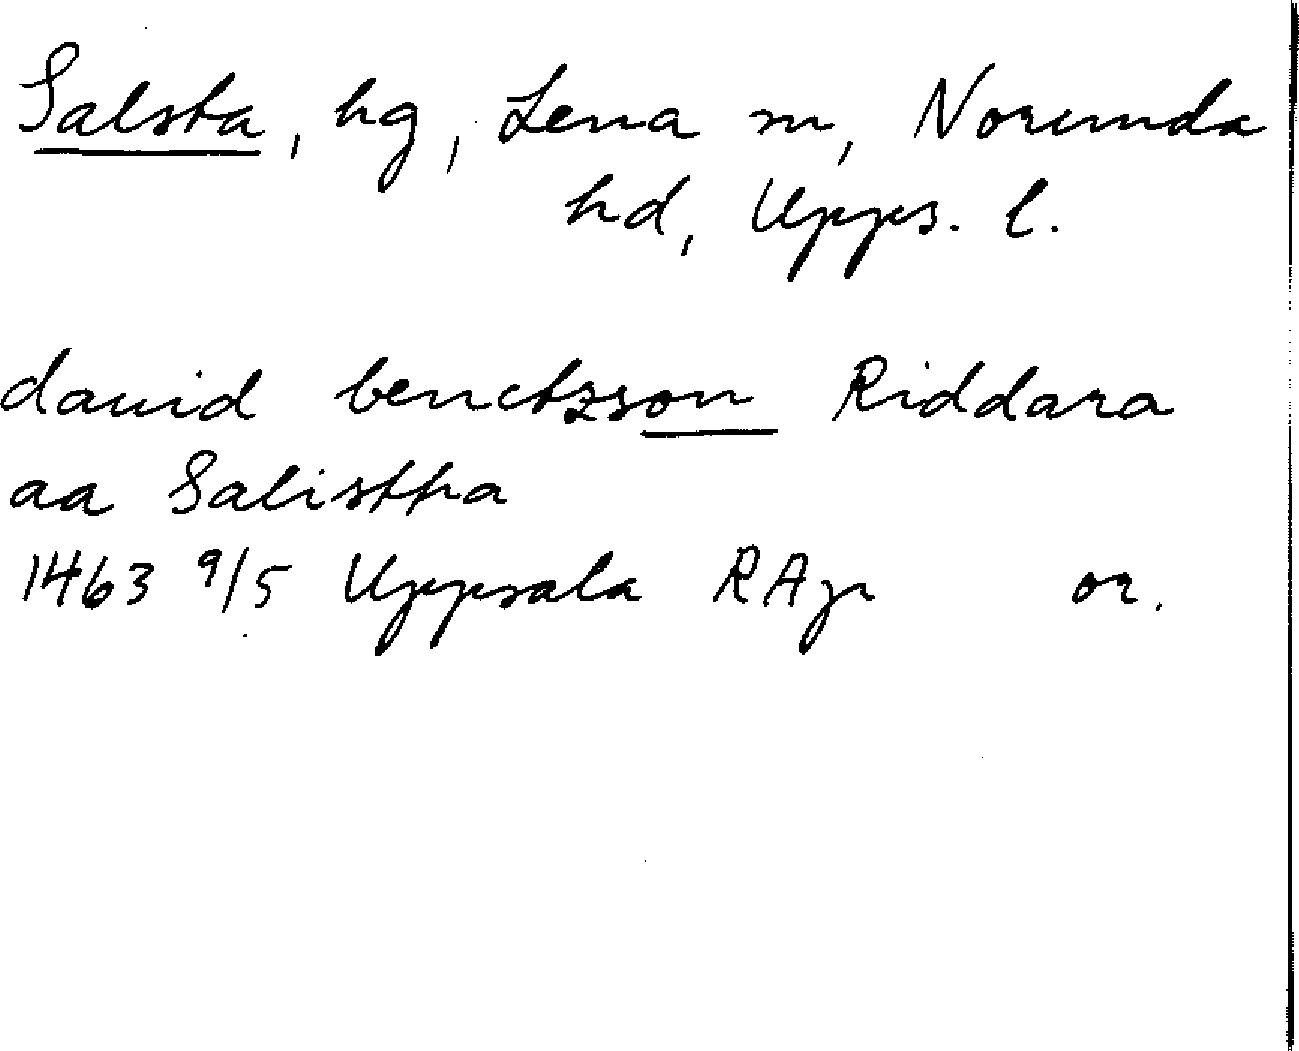 Salsta, hg, Lena sn, Norunda
hd, Upps. l.
dauid benctzson Riddara
aa Salistha
1463 9/5 Uppsala RAp or.